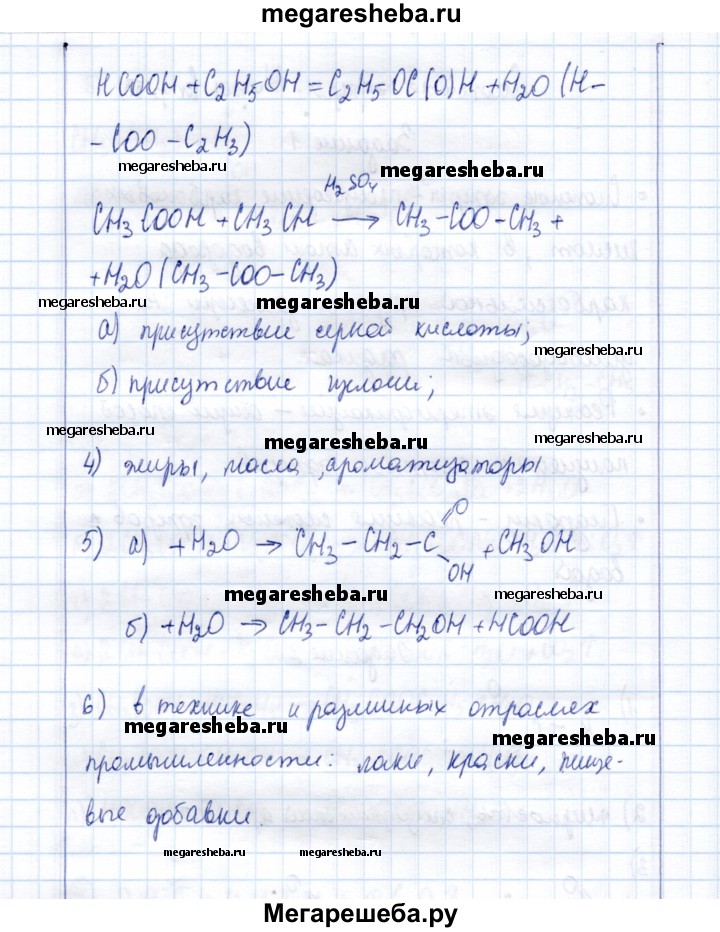 megaresheba.ru
HCOOH + C₂H₅OH = C₂H₅OC(O)H + H₂O (H-
-COO-C₂H₃)
megaresheba.ru
megaresheba.ru
H₂SO₄
CH₃COOH + CH₃CH → CH₃-COO-CH₃ +
+ H₂O (CH₃-COO-CH₃)
megaresheba.ru
megaresheba.ru
а) присутствие серной кислоты;
megaresheba.ru
б) присутствие щелочи;
megaresheba.ru
megaresheba.ru
megaresheba.ru
4) жиры, масла, ароматизаторы
O
5) а) + H₂O → CH₃-CH₂-C + CH₃OH
OH
megaresheba.ru
megaresheba.ru
б) + H₂O → CH₃-CH₂-CH₂OH + HCOOH
6) в технике и различных отраслях
megaresheba.ru
megaresheba.ru
промышленности: лаки, краски, пище-
вые добавки.
megaresheba.ru
megaresheba.ru
Мегарешеба.ру